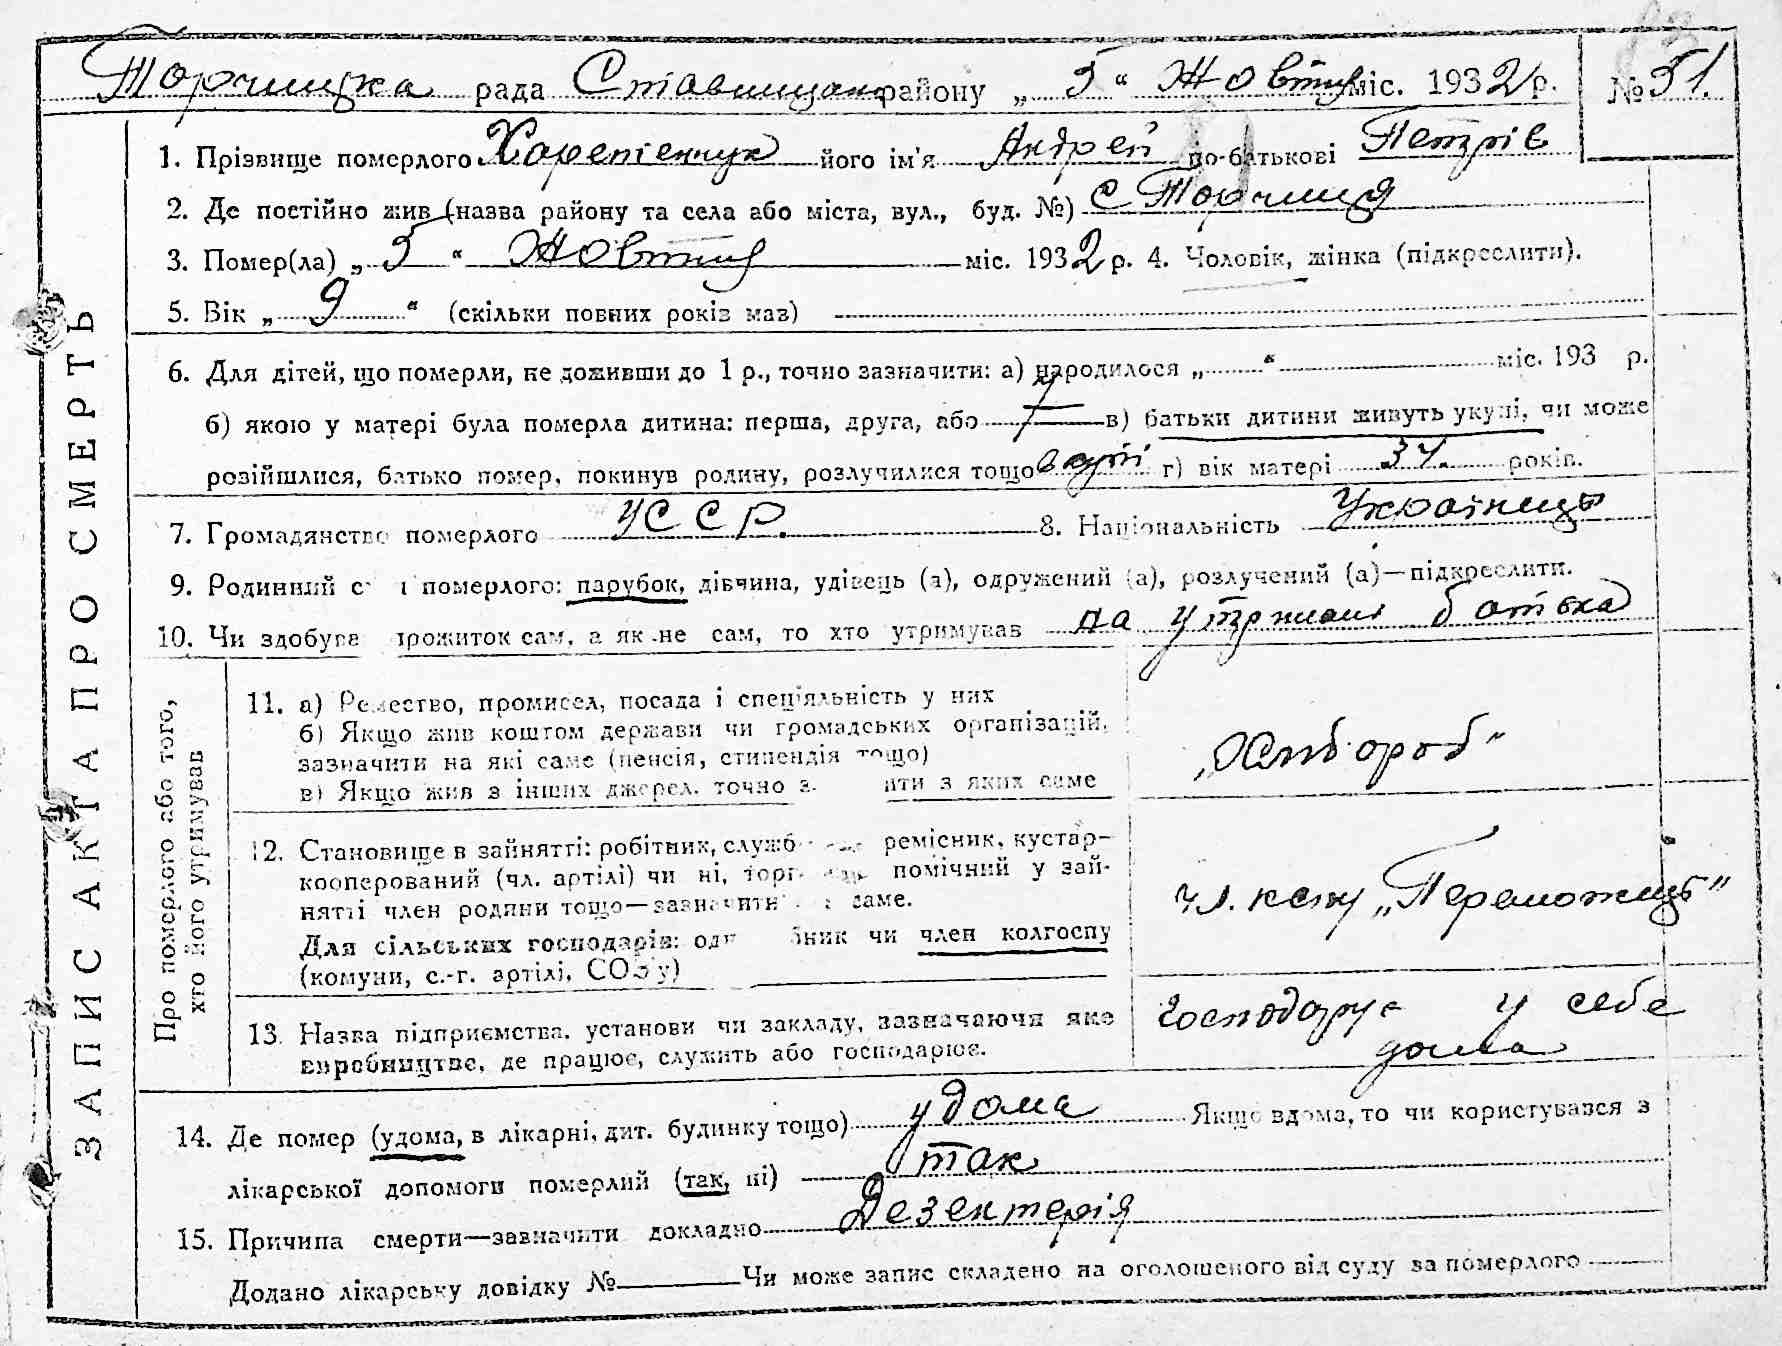 Торчицка рада Ставищанс району „ 5 “ Жовтня міс. 1932 р. № 51.
1. Прізвище померлого Харетенчук його ім'я Андрей по-батькові Петрів
2. Де постійно жив (назва району та села або міста, вул., буд. №) С Торчиця
3. Помер(ла) „ 5 “ Жовтня міс. 1932 р. 4. Чоловік, жінка (підкреслити).
5. Вік „ 9 “ (скільки повних років мав)
6. Для дітей, що померли, не доживши до 1 р., точно зазначити: а) народилося „ “ міс. 193 р.
б) якою у матері була померла дитина: перша, друга, або в) батьки дитини живуть укупі, чи може
розійшлися, батько помер, покинув родину, розлучилися тощо вкупі г) вік матері 34. років.
7. Громадянство померлого УССР. 8. Національність Українець
9. Родинний с померлого: парубок, дівчина, удівець (а), одружений (а), розлучений (а)—підкреслити.
10. Чи здобував прожиток сам, а як не сам, то хто утримував на утрмані батька
ЗАПИС АКТА ПРО СМЕРТЬ
Про померлого або того,
хто його утримував
11. а) Ремество, промисел, посада і спеціяльність у них
б) Якщо жив коштом держави чи громадських організацій,
зазначити на які саме (пенсія, стипендія тощо)
в) Якщо жив з інших джерел, точно з ити з яких саме
„Хлібороб“
12. Становище в зайнятті: робітник, служб ремісник, кустар-
кооперований (чл. артілі) чи ні, торг помічний у зай-
нятті член родини тощо—зазначити саме.
Для сільських господарів: од ник чи член колгоспу
(комуни, с.-г. артілі, СОЗ'у)
чл. кспу „Переможець“
13. Назва підприємства, установи чи закладу, зазначаючи яке
виробництво, де працює, служить або господарює.
Господарує у себе
дома
14. Де помер (удома, в лікарні, дит. будинку тощо) удома Якщо вдома, то чи користувався з
лікарської допомоги померлий (так, ні) так
15. Причина смерти—зазначити докладно Дезентерія
Додано лікарську довідку № Чи може запис складено на оголошеного від суду за померлого